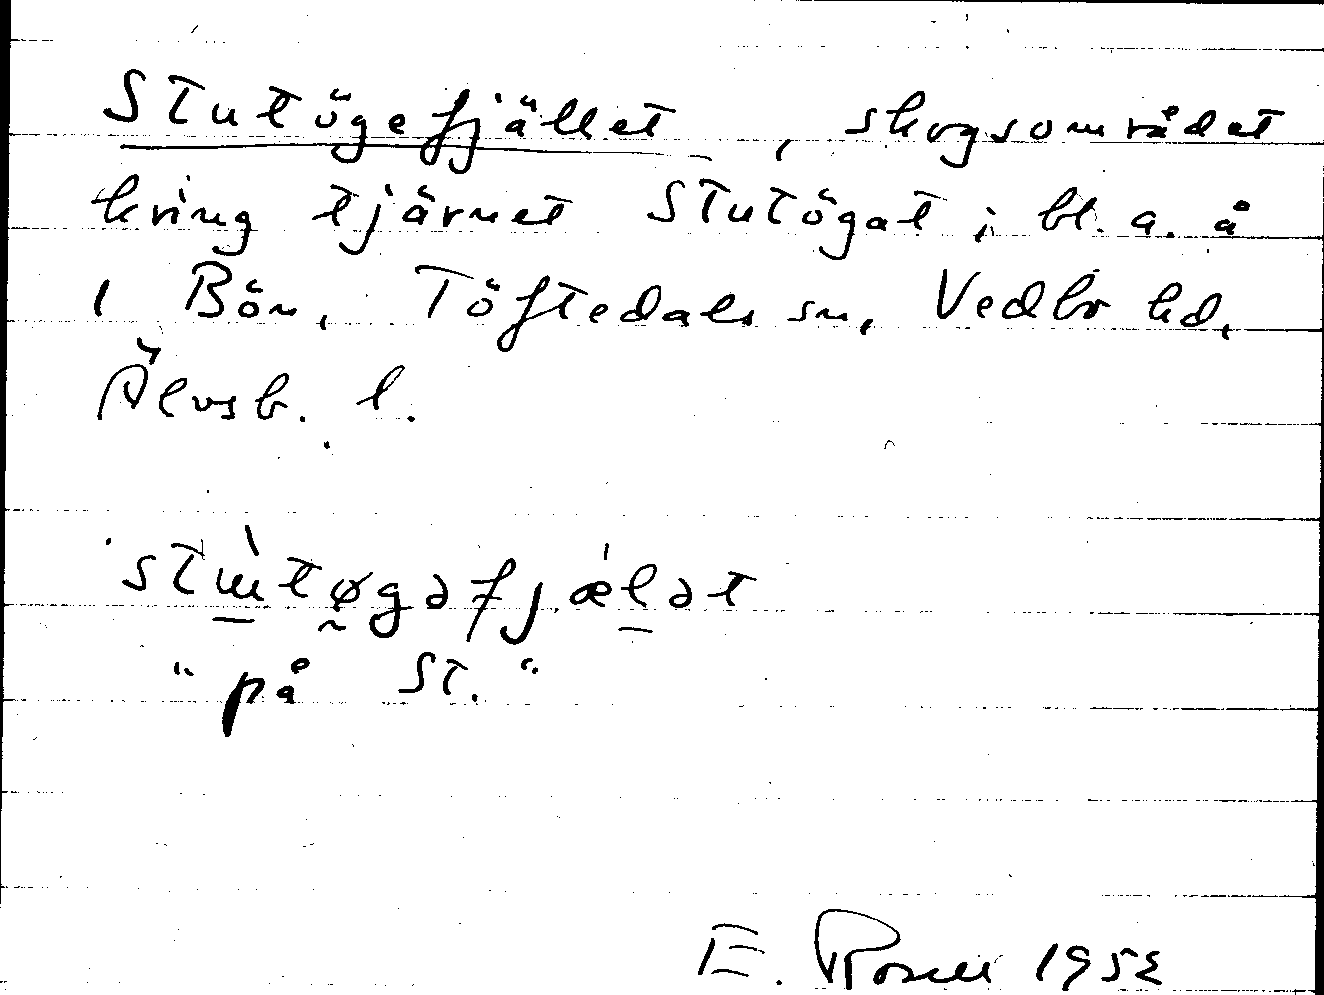 Stutögefjället, skogsområdet
kring tjärnet Stutögat; bl. a. å
1 Bön, Töftedals sn, Vedbo hd,
Älvsb. l.
stɯ̀tøgəfjǽlət
"på St."
E. Rosell 1952